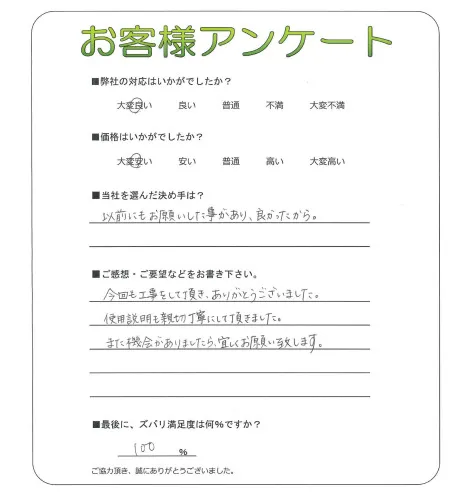 お客様アンケート
■弊社の対応はいかがでしたか？
大変良い　良い　普通　不満　大変不満
■価格はいかがでしたか？
大変安い　安い　普通　高い　大変高い
■当社を選んだ決め手は？
以前にもお願いした事があり、良かったから。
■ご感想・ご要望などをお書き下さい。
今回も工事をして頂き、ありがとうございました。
使用説明も親切丁寧にして頂きました。
また機会がありましたら、宜しくお願い致します。
■最後に、ズバリ満足度は何%ですか？
100 %
ご協力頂き、誠にありがとうございました。